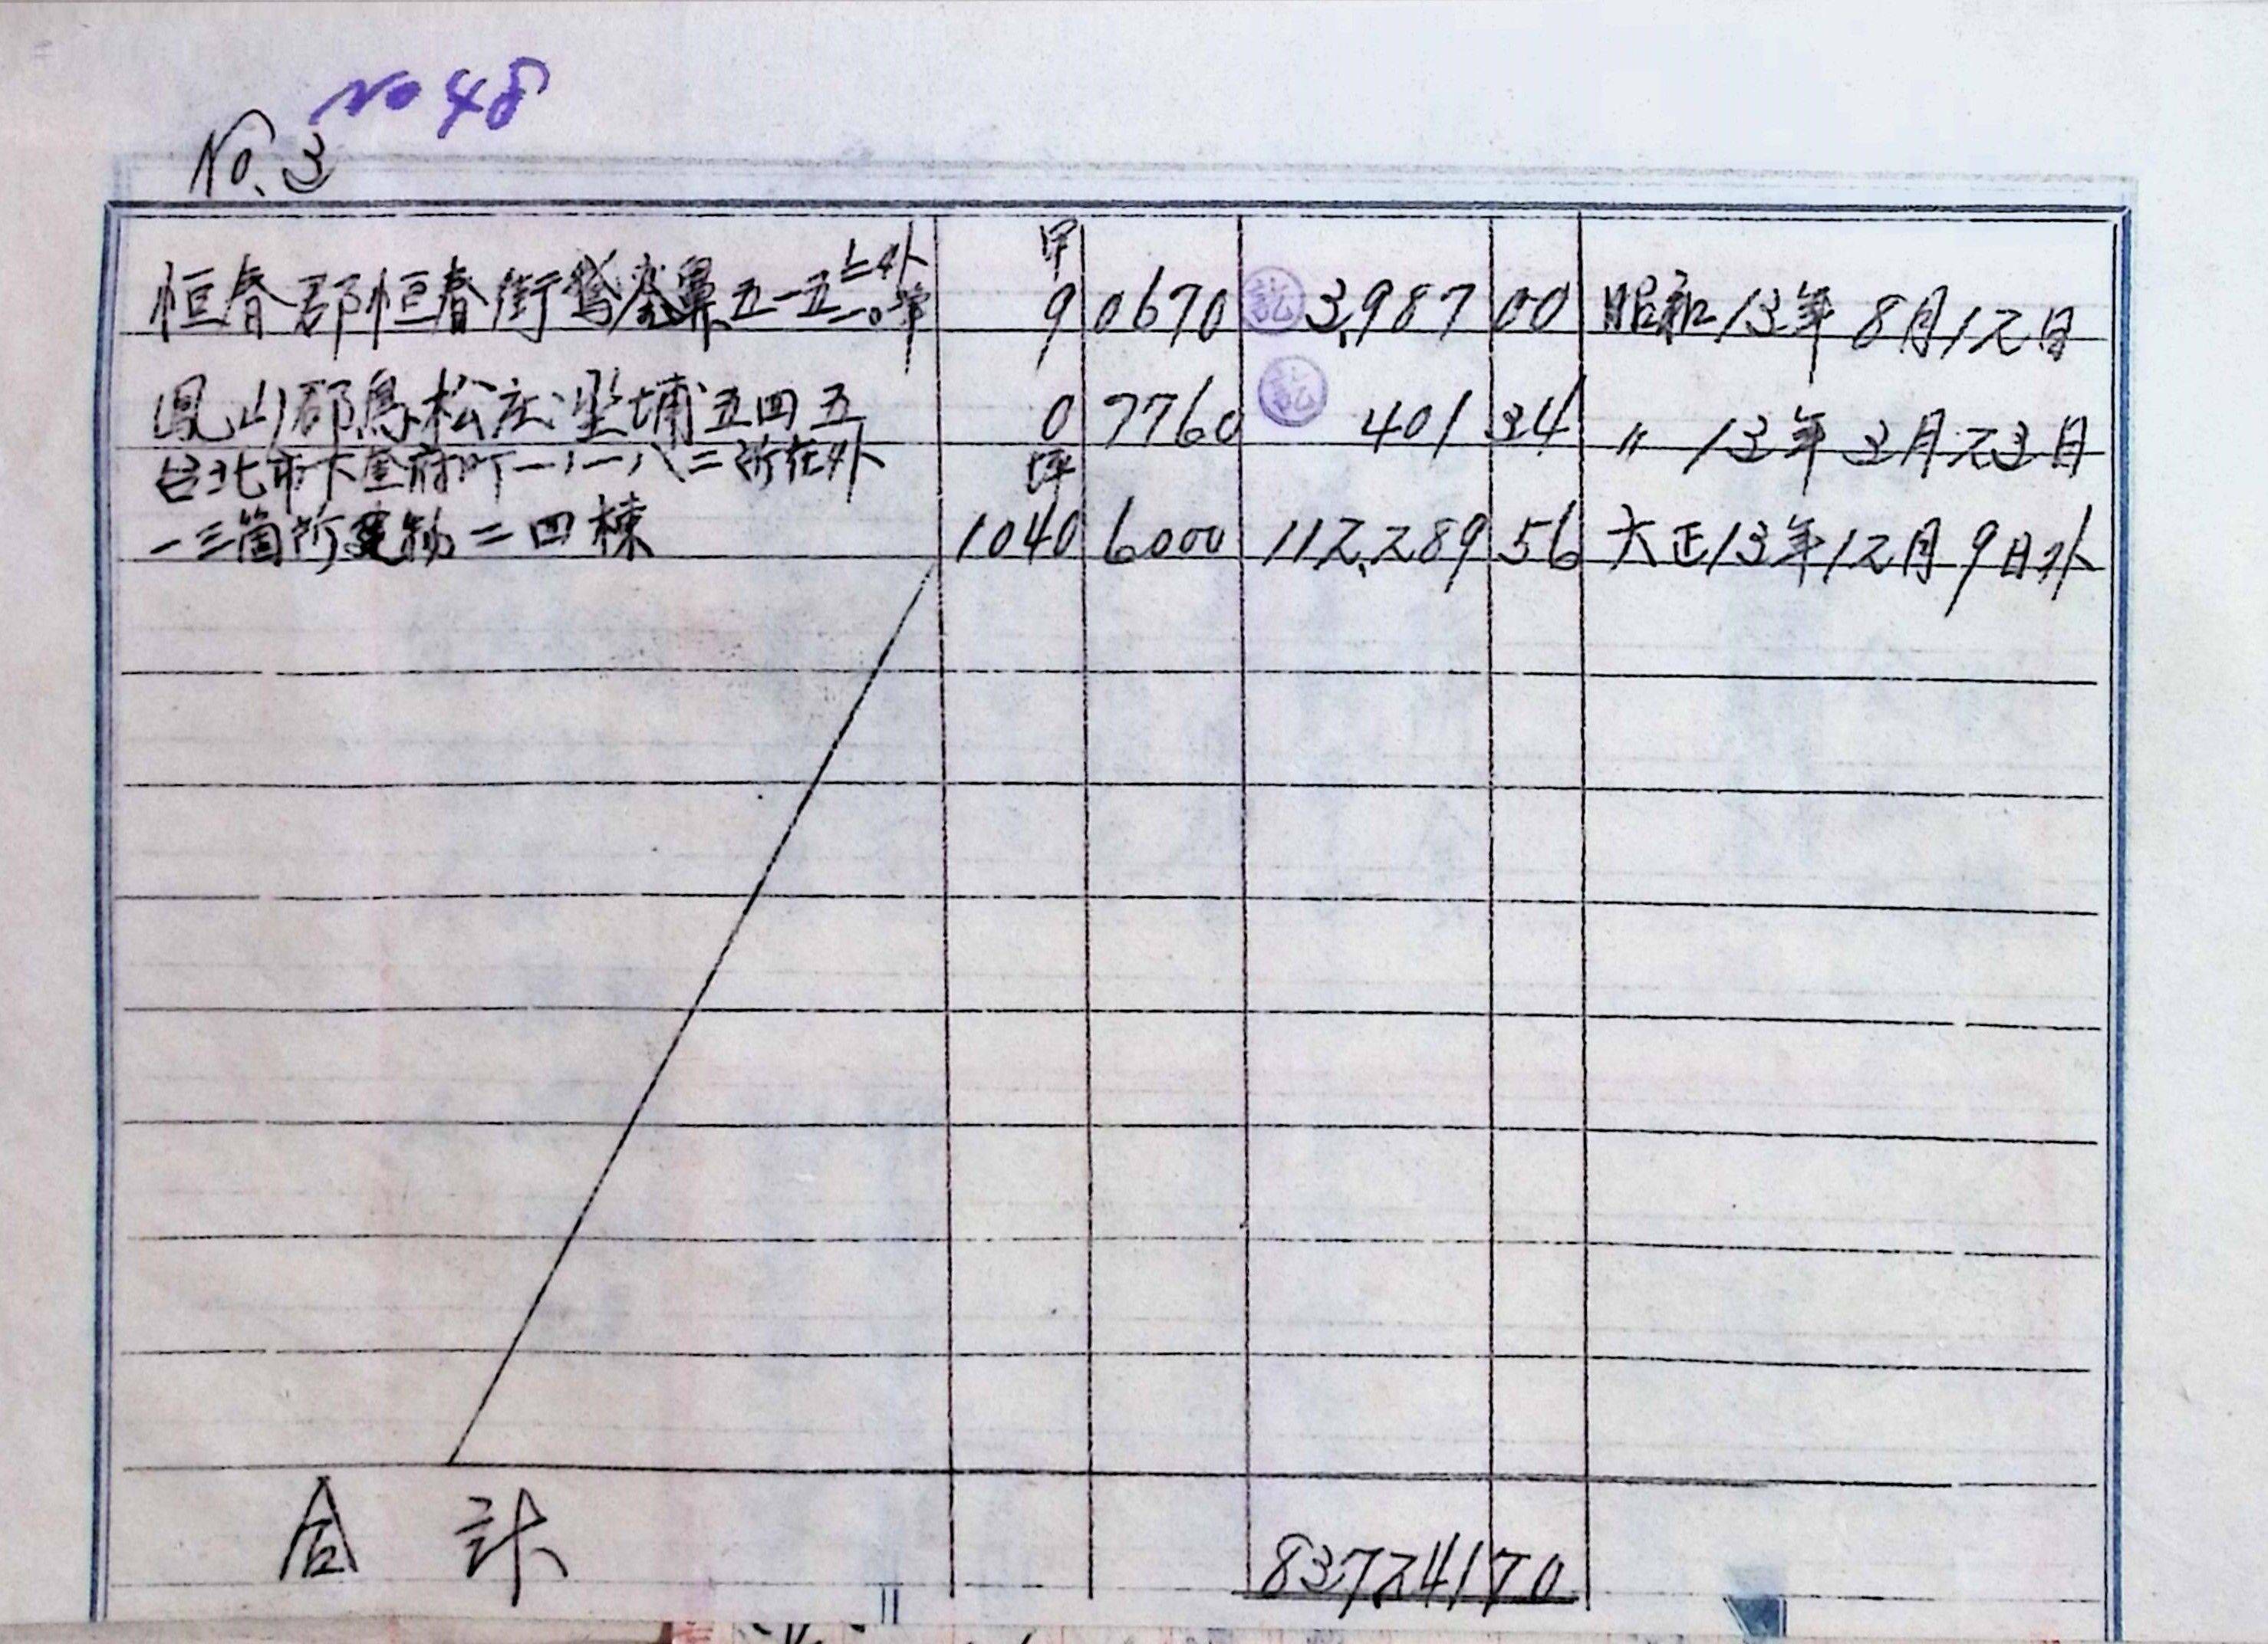 No 48
No. 3
恒春郡恒春街鵞鑾鼻五一五ノ二外二〇筆 甲 9 0670 訖 3,987 00 昭和13年8月12日
鳳山郡鳥松庄 埔五四五 0 7760 訖 401 34 〃 13年3月23日
台北市大 府町一ノ一八二所在外
一三箇所建物二四棟 坪 1040 6000 112,289 56 大正13年12月9日外
合計 837241 70